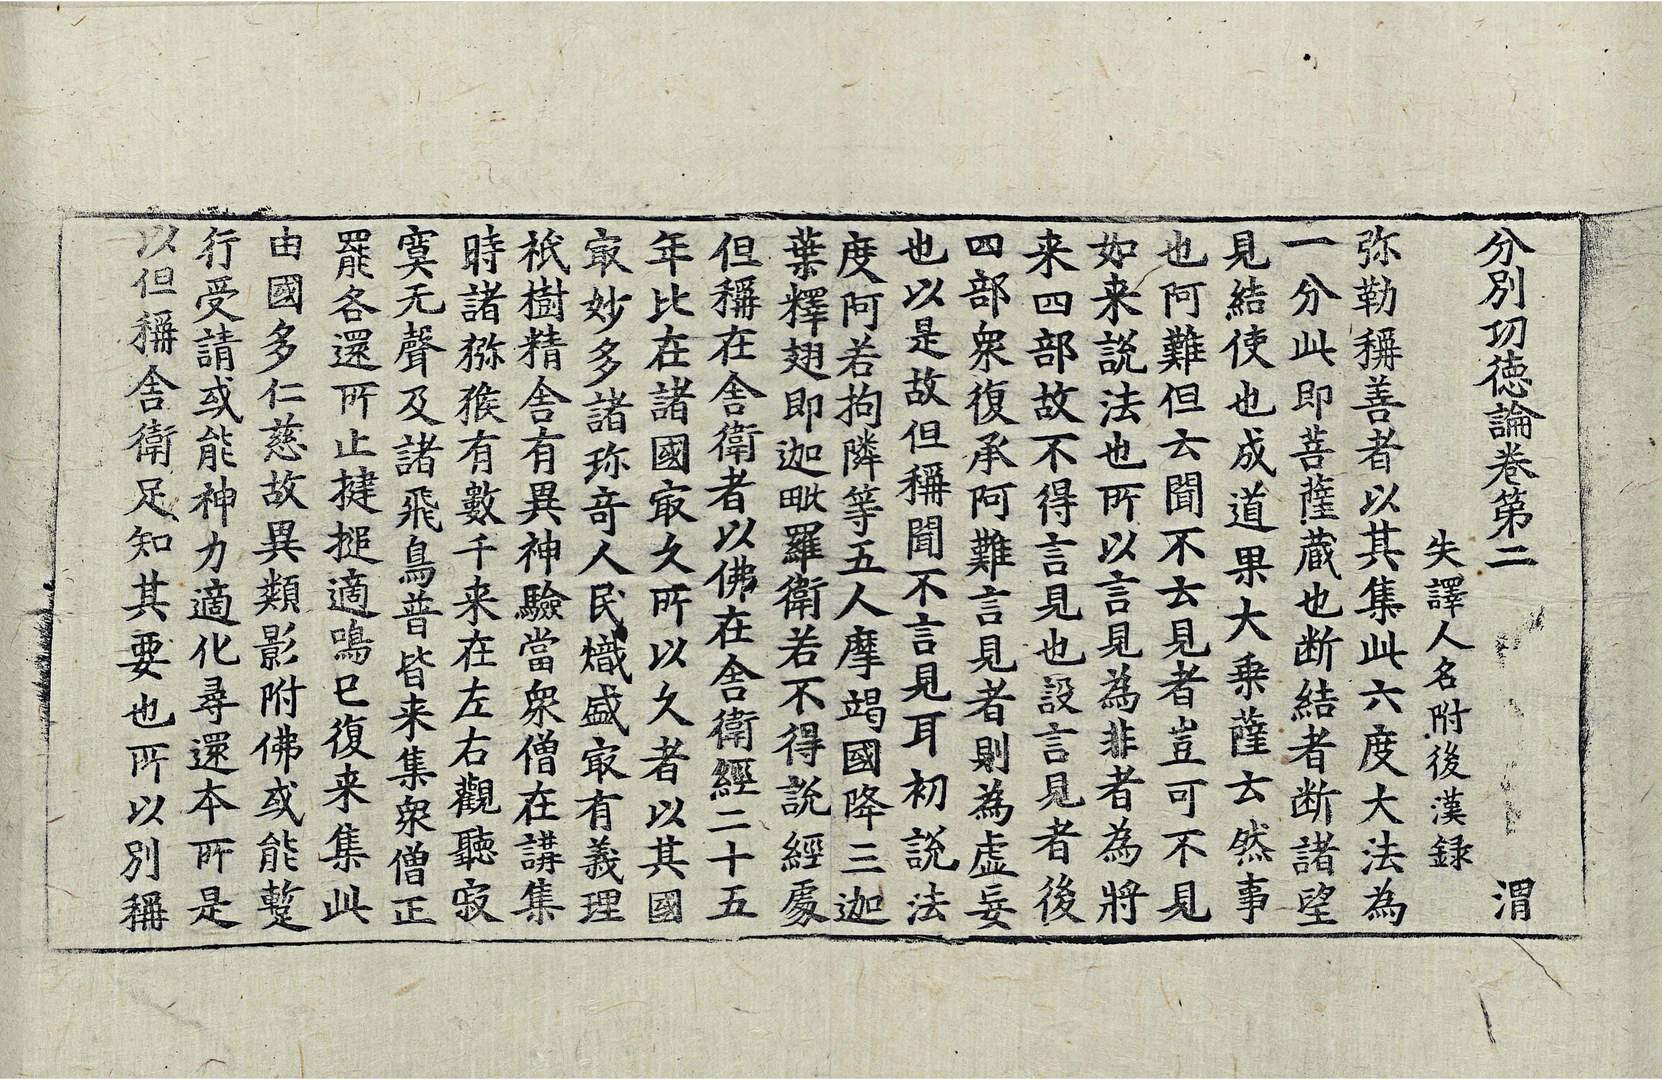 分別功德論卷第二 渭
失譯人名附後漢録
弥勒稱善者以其集此六度大法為
一分此即菩薩藏也断結者断諸望
見結使也成道果大乗薩云然事
也阿難但云聞不云見者豈可不見
如来說法也所以言見為非者為將
来四部故不得言見也設言見者後
四部衆復承阿難言見者則為虚妄
也以是故但稱聞不言見耳初說法
度阿若拘隣等五人摩竭國降三迦
葉釋翅即迦毗羅衛若不得說經處
但稱在舎衛者以佛在舎衛經二十五
年比在諸國㝡久所以久者以其國
㝡妙多諸珎竒人民熾盛㝡有義理
祇樹精舎有異神驗當衆僧在講集
時諸獼猴有數千来在左右觀聽寂
寞无聲及諸飛鳥普皆来集衆僧正
罷各還所止揵搥適鳴已復来集此
由國多仁慈故異類影附佛或能蹔
行受請或能神力適化尋還本所是
以但稱舎衛足知其要也所以別稱